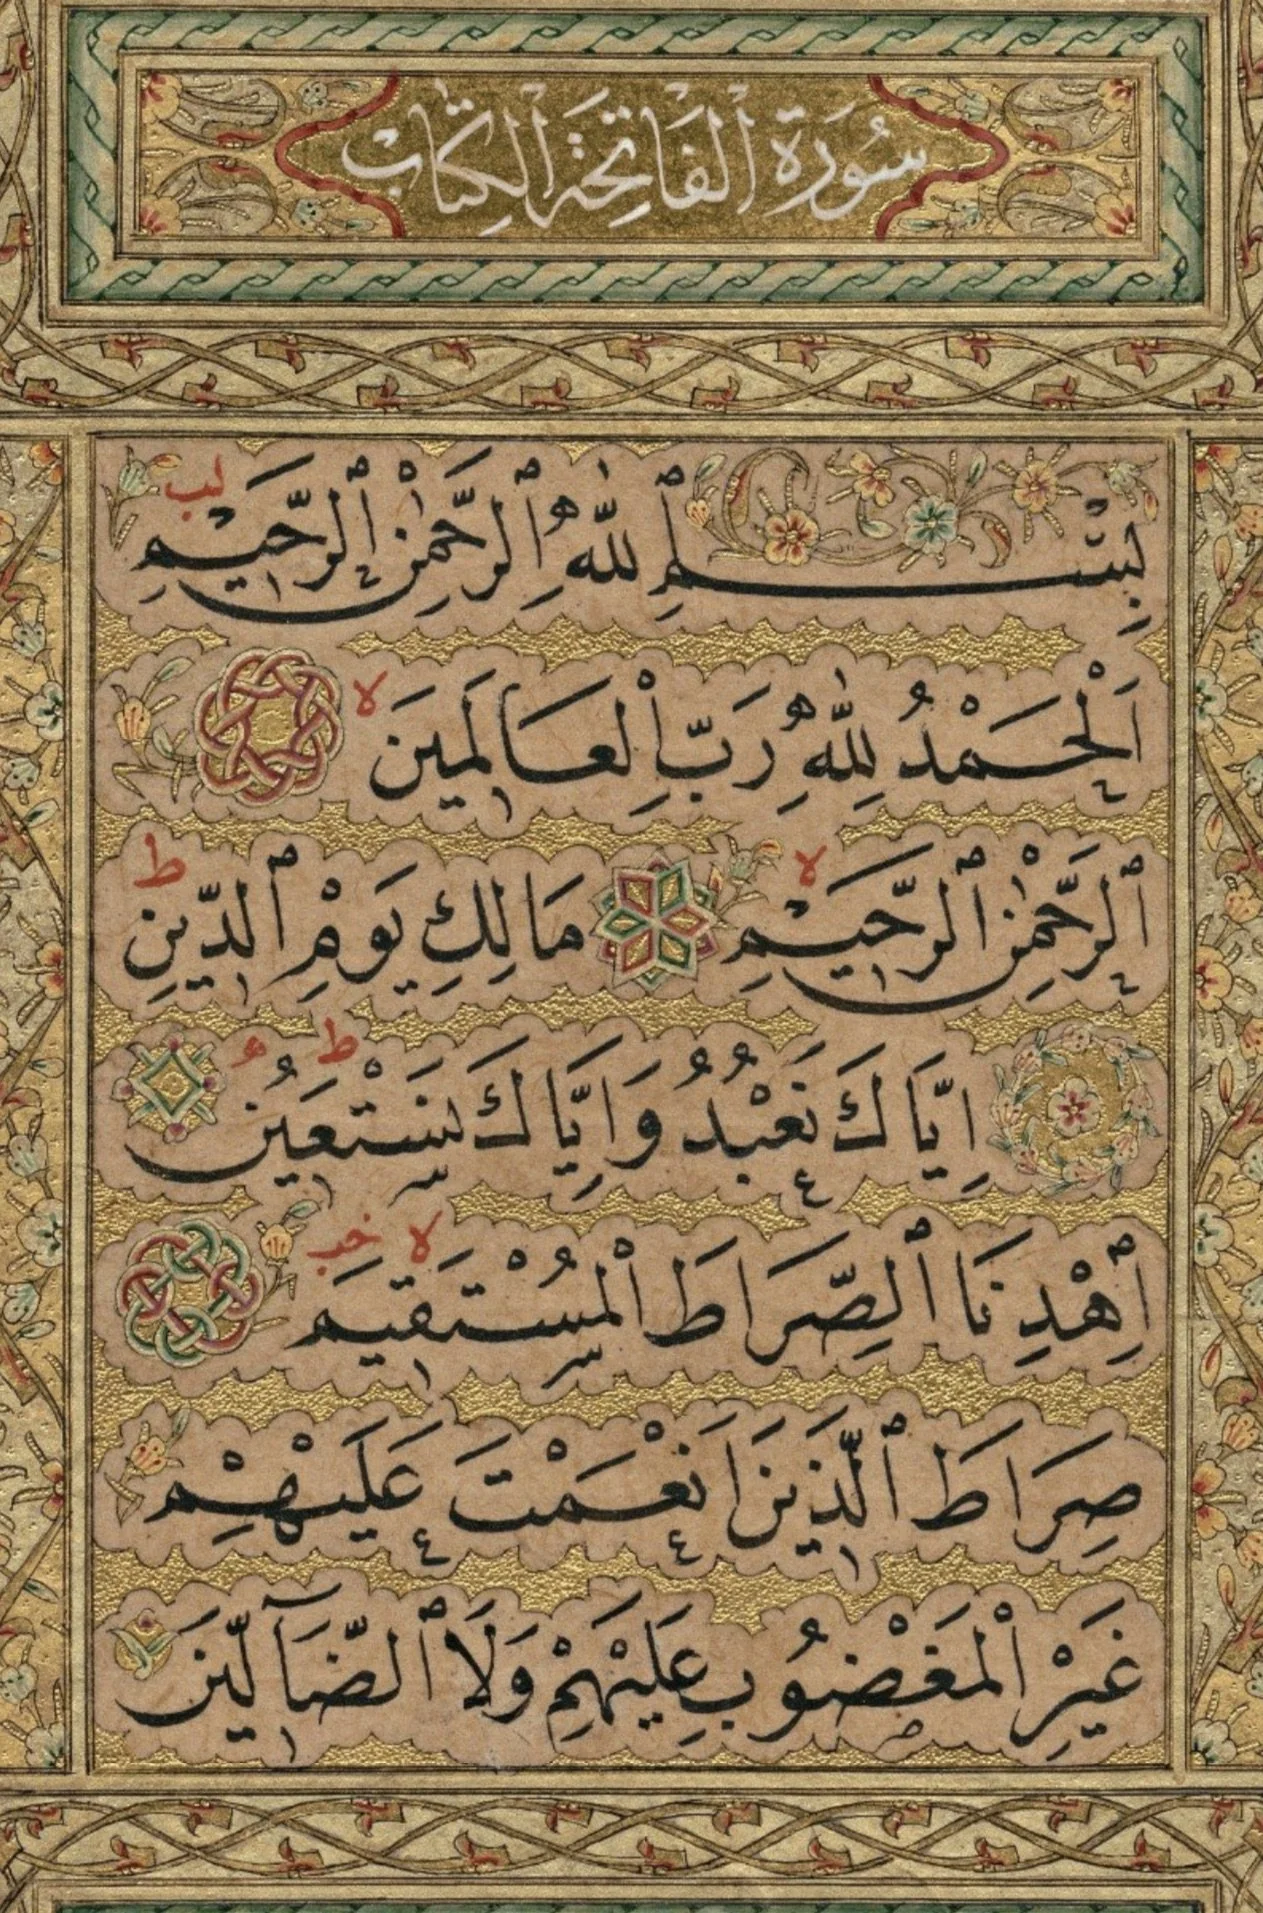 سُورَةُ الْفَاتِحَةِ الْكِتَابْ
بِسْمِ اللهِ الرَّحْمٰنِ الرَّحِيمِ لب
اَلْحَمْدُ لِلّٰهِ رَبِّ الْعَالَمِينَ لا
اَلرَّحْمٰنِ الرَّحِيمِ لا مَالِكِ يَوْمِ الدِّينِ ط
اِيَّاكَ نَعْبُدُ وَاِيَّاكَ نَسْتَعِينُ ط
اِهْدِنَا الصِّرَاطَ الْمُسْتَقِيمَ لا خب
صِرَاطَ الَّذِينَ اَنْعَمْتَ عَلَيْهِمْ
غَيْرِ الْمَغْضُوبِ عَلَيْهِمْ وَلَا الضَّآلِّينَ